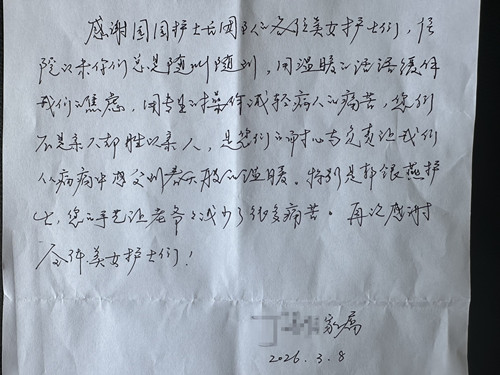 感谢国国护士站团队的各位美女护士们，住
院以来你们总是随叫随到，用温暖的话语缓解
我们的焦虑，用专业的操作减轻病人的痛苦，您们
不是亲人却胜似亲人，是您们的耐心与负责让我们
从病痛中感受到春天般的温暖。特别是郭银燕护
士，您的手艺让老爷子减少了很多痛苦。再次感谢
全体美女护士们！
丁 家属
2026.3.8